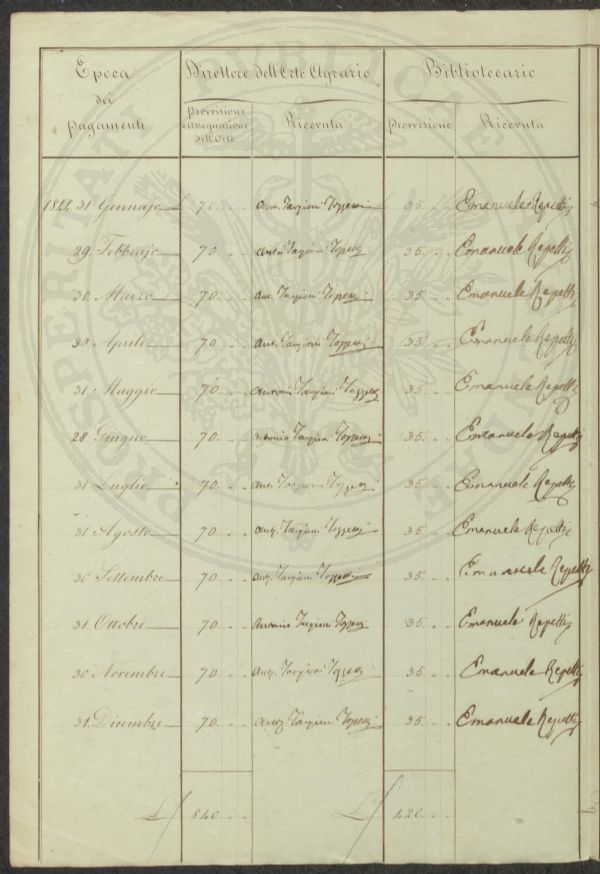 Epoca dei pagamenti
Direttore dell'Orto Agrario
Bibliotecario
Provvisione e assegnazione dell'Orto
Ricevuta
Provvisione
Ricevuta
1844. 31 Gennajo 70 Ant. Targioni Tozzetti 35 Emanuele Repetti
29 Febbrajo 70 Ant. Targioni Tozzetti 35 Emanuele Repetti
30 Marzo 70 Ant. Targioni Tozzetti 35 Emanuele Repetti
Aprile 70 Ant. Targioni Tozzetti 35 Emanuele Repetti
31 Maggio 70 Antonio Targioni Tozzetti 35 Emanuele Repetti
28 Giugno 70 Antonio Targioni Tozzetti 35 Emanuele Repetti
31 Luglio 70 Ant. Targioni Tozzetti 35 Emanuele Repetti
31 Agosto 70 Ant. Targioni Tozzetti 35 Emanuele Repetti
30 Settembre 70 Ant. Targioni Tozzetti 35 Emanuele Repetti
31 Ottobre 70 Antonio Targioni Tozzetti 35 Emanuele Repetti
30 Novembre 70 Ant. Targioni Tozzetti 35 Emanuele Repetti
31 Dicembre 70 Ant. Targioni Tozzetti 35 Emanuele Repetti
840 420
PROSPERITATI PUBLICAE